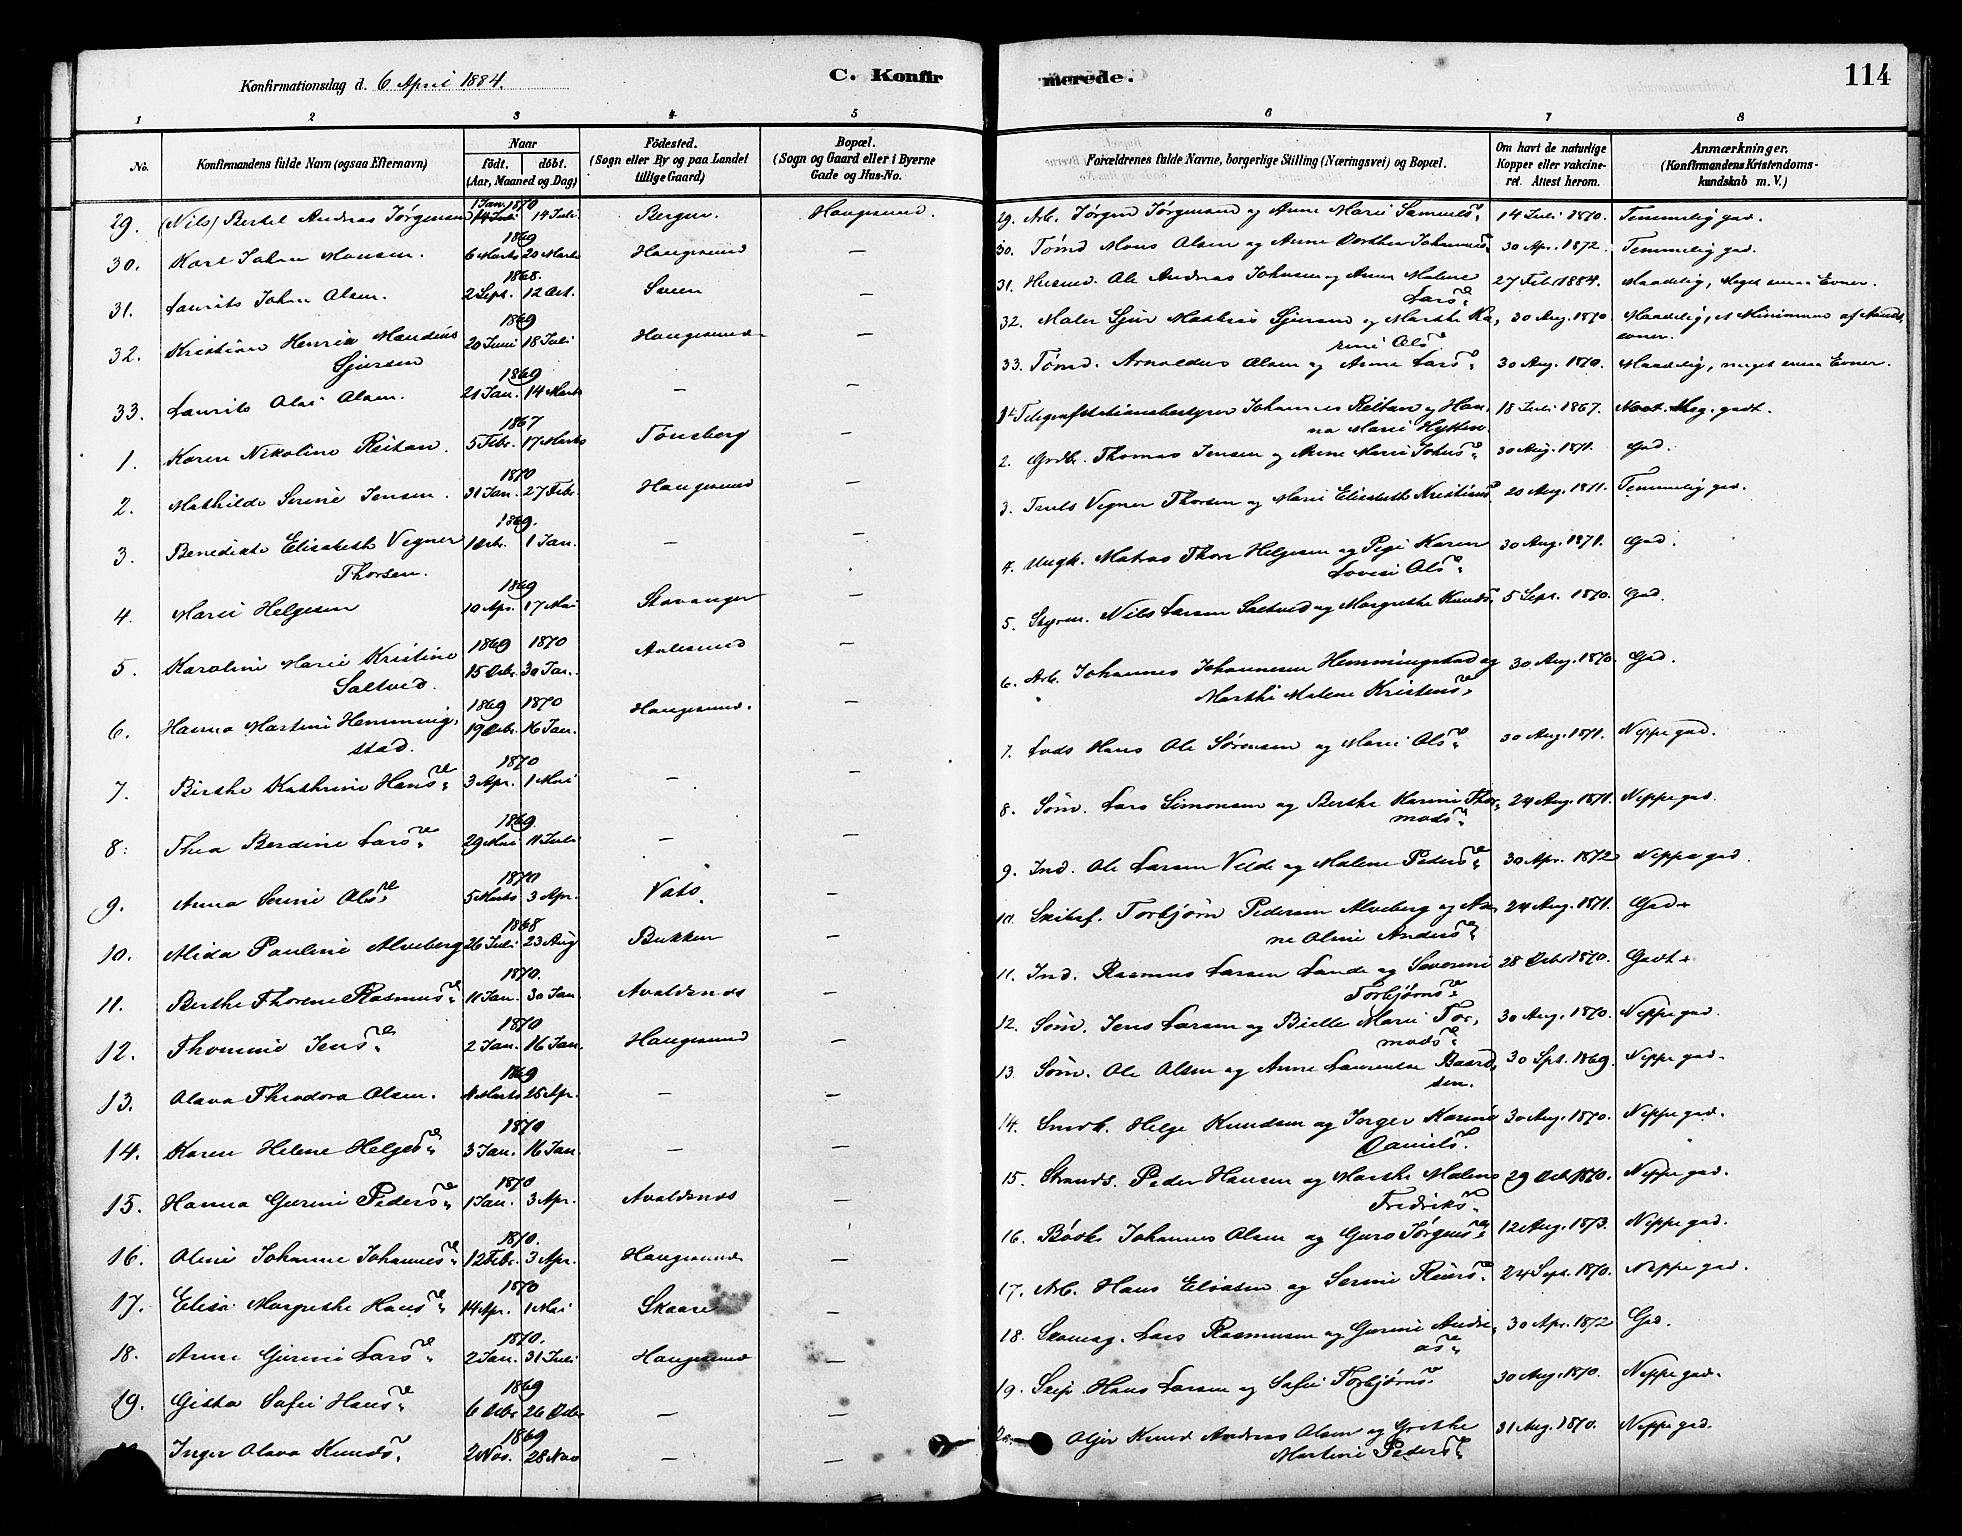 Konfirmationsdag d. 6 April 1884.
C. Konfirmerede.
114
1 2 3 4 5 6 7 8
No.
Konfirmandens fulde Navn (ogsaa Efternavn)
Naar
födt. döbt.
(Aar, Maaned og Dag)
Födested.
(Sogn eller By og paa Landet
tillige Gaard)
Bopæl.
(Sogn og Gaard eller i Byerne
Gade og Hus-No.
Forældrenes fulde Navne, borgerlige Stilling (Næringsvei) og Bopæl.
Om havt de naturlige
Kopper eller vakcine-
ret. Attest herom.
Anmærkninger.
(Konfirmandens Kristendoms-
kundskab m. V.)
29. (Nils) Bertel Andreas Jørgensen 1 Jan. 1870 14 Juli Bergen Haugesund. 29. Arb. Jørgen Jørgensen og Anne Marie Samuelsd 14 Juli 1870. Temmelig god.
1869
30. Karl Johan Monsen. 6 Marts 20 Marts Haugesund — 30. Tømd Mons Olsen og Anne Dorthea Johannesd 30 Apr. 1872. Temmelig god.
1868.
31. Laurits Johan Olsen. 2 Sept. 12 Oct. Sveen — 31. Husmd. Ole Andreas Johnsen og Anna Malene
Larsd 27 Febr 1884. Maadelig, Meget smaa Evner.
1869
32. Kristian Henrik Mandius
Sjursen 20 Juni 18 Juli Haugesund — 32. Maler Sjur Mathias Sjursen og Marthe Ka,
rine Olsd 30 Aug. 1870 Maadelig, et Minimum af Aands,
evner.
1869
33. Laurits Olai Olsen. 21 Jan. 14 Marts — — 33. Tømd. Arnoldus Olsen og Anne Larsd 30 Aug. 1870. Maadelig, meget smaa Evner.
1867
1. Karen Nikoline Reitan. 5 Febr. 17 Marts Tønsberg — 1. Telegrafstationsbestyrer Johannes Reitan og Han,
na Marie Hytten 18 Juli 1867. Noot. Meg. godt.
1870
2. Mathilde Serine Jensen. 31 Jan. 27 Febr. Haugesund — 2. Grdbr. Thomas Jensen og Anne Marie Johsd 30 Aug. 1871. God.
1869.
3. Benedikte Elisabeth Vegner
Thorsen. 1 Jan. — — 3. Truls Vegner Thorsen og Marie Elisabeth Kristiansd 20 Aug. 1871. Temmelig god.
1869
4. Marie Helgesen 10 Apr. 17 Mai Stavanger — 4. Ungk. Matros Thore Helgesen og Pige Karen
Lovise Olsd 30 Aug. 1871. God.
1869 1870
5. Karoline Marie Kristine
Saltved. 15 Decbr. 30 Jan. Aalesund — 5. Styrm. Nils Larsen Saltved og Margrethe Knudsd 5 Sept. 1870. God.
1869 1870
6. Hanna Martine Hemming,
stad. 19 Decbr. 16 Jan. Haugesund. — 6. Arb. Johannes Johannesen Hemmingstad og
Marthe Malene Kristensd 30 Aug. 1870. God.
1870
7. Birthe Kathrine Hansd 3 Apr. 1 Mai — — 7. Lods Hans Ole Sørensen og Marie Olsd 30 Aug. 1871. Neppe god.
1869
8. Thea Berdine Larsd 29 Mai 11 Juli — — 8. Søm. Lars Simonsen og Berthe Karine Thor,
modsd 24 Aug. 1871. Neppe god.
1870
9. Anna Serine Olsd 5 Marts 3 Apr. Vats. — 9. Ind. Ole Larsen Velde og Malene Pedersd 30 Apr. 1872 Neppe god.
1868
10. Alida Pauline Alveberg 26 Juli 23 Aug Bukken — 10. Skibsf. Torbjørn Pedersen Alveberg og An,
ne Oline Andersd 24 Aug. 1871. God+
1870.
11. Berthe Thorene Rasmusd 11 Jan. 30 Jan Avaldsnes — 11. Ind. Rasmus Larsen Lande og Severine
Torbjørnsd 28 Decbr 1870. Godt+
1870
12. Thomine Jensd 2 Jan. 16 Jan. Haugesund — 12. Søm. Jens Larsen og Bielle Marie Tor,
modsd 30 Aug. 1870. Neppe god.
1869
13. Olava Theodora Olsen. 11 Marts 25 Apr. — — 13. Søm. Ole Olsen og Anne Laurentse Baard,
sen. 30 Spt. 1869. Neppe god.
1870
14. Karen Helene Helgesd 3 Jan. 16 Jan — — 14. Smedk. Helge Knudsen og Inger Karine
Danielsd. 30 Aug. 1870. Neppe god.
1870
15. Hanna Gurine Pedersd 1 Jan. 3 Apr. Avaldsnes — 15. Strands. Peder Hansen og Marthe Malene
Fredriksd 29 Oct 1870. Neppe god.
1870.
16. Oline Johanne Johannesd 12 Febr. 3 Apr. Haugesund — 16. Bødk Johannes Olsen og Guro Jørgensd 12 Aug. 1873. Neppe god.
1870
17. Elisa Margrethe Hansd 14 Apr. 1 Mai Skaare — 17. Arb. Hans Eliasen og Serine Reiersd 24 Sept. 1870. Neppe god.
1870.
18. Anne Gurine Larsd 2 Jan. 31 Juli Haugesund — 18. Skomag. Lars Rasmusen og Gurine Andre,
asd 30 Apr. 1872 God.
1869
19. Githa Sofie Hansd 6 Octbr 26 Decbr — — 19. Skip. Hans Larsen og Sofie Torbjørnsd 30 Aug. 1870. Neppe god.
1869
Inger Olava Knudsd 2 Nov. 28 Nov — — 20. Oljer Knud Andreas Olsen og Grethe
Martine Pedersd 31 Aug. 1870. Neppe god.